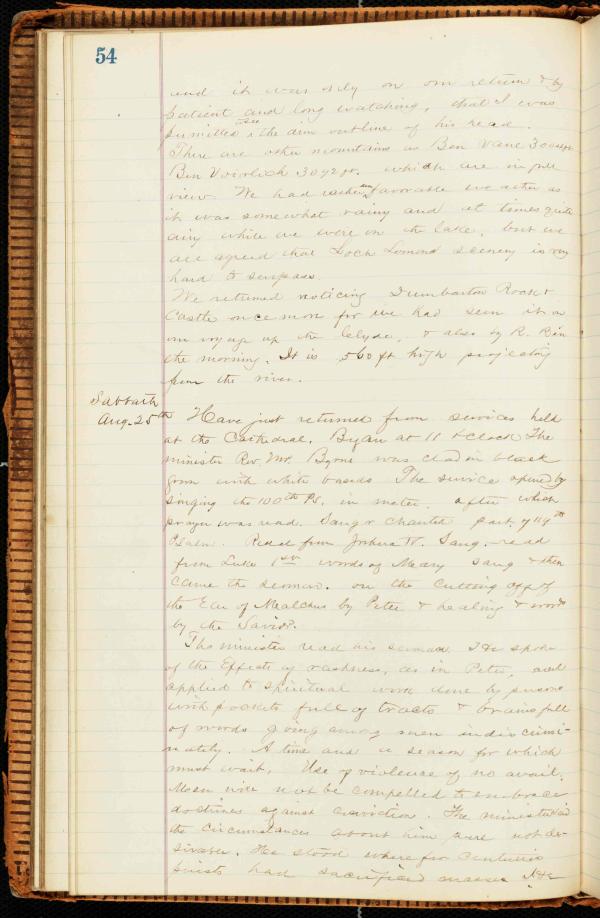 54
and it was only on our return & by
patient and long watching, that I was
permitted to see the dim outline of his head.
There are other mountains as Ben Vane 3004 ft
Ben Voirlich 3092 ft. which are in full
view. We had rather an favorable weather as
it was somewhat rainy and at times quite
airy while we were on the lake, but we
are agreed that Loch Lomond scenery is very
hard to surpass.
We returned noticing Dumbarton Rock &
Castle once more for we had seen it on
our voyage up the Clyde, & also by R. R. in
the morning. It is 560 ft high projecting
from the river.
Sabbath
Aug. 25th Have just returned from services held
at the Cathedral. Began at 11 o'clock The
minister Rev. Mr. Byrne was clad in black
gown with white bands The service opened by
singing the 100th Ps. in meter. after which
prayer was read. Sang or chanted part of 119th
Psalm. Read from Joshua Sang. read
from Luke 1st words of Mary sang & then
came the sermon. on the Cutting off of
the Ear of Mealchus by Peter & healing & words
by the Savior.
The minister read his sermon. He spoke
of the Effects of rashness, as in Peter, and
applied to spiritual work done by persons
with pockets full of tracts & brains full
of words going among men indiscrimi-
nately. A time and a season for which
must wait. Use of violence of no avail.
Men will not be compelled to embrace
doctrines against conviction. The minister said
the circumstances about him were not de-
sirable. He stood where for centuries
priests had sacrificed masses &c